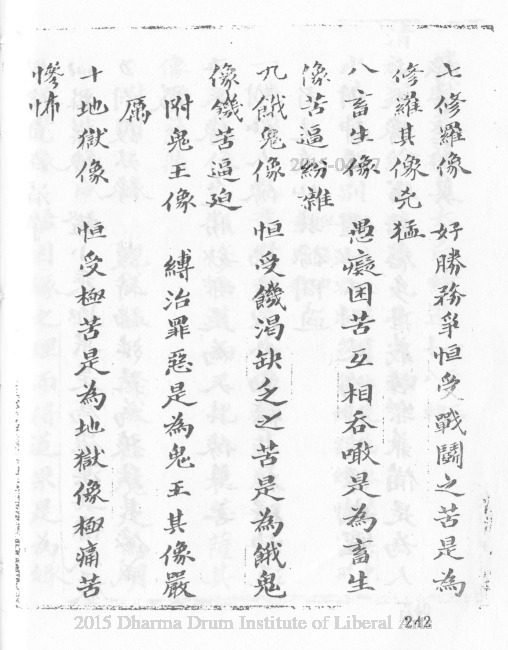 七修羅像　好勝務爭恒受戰鬪之苦是為
修羅其像兇猛
八畜生像　愚癡困苦互相吞噉是為畜生
像苦逼紛雜
九餓鬼像　恒受饑渴缺乏之苦是為餓鬼
像饑苦逼迫
附鬼王像　縛治罪惡是為鬼王其像嚴
厲
十地獄像　恒受極苦是為地獄像極痛苦
慘怖
2015 Dharma Drum Institute of Liberal
242